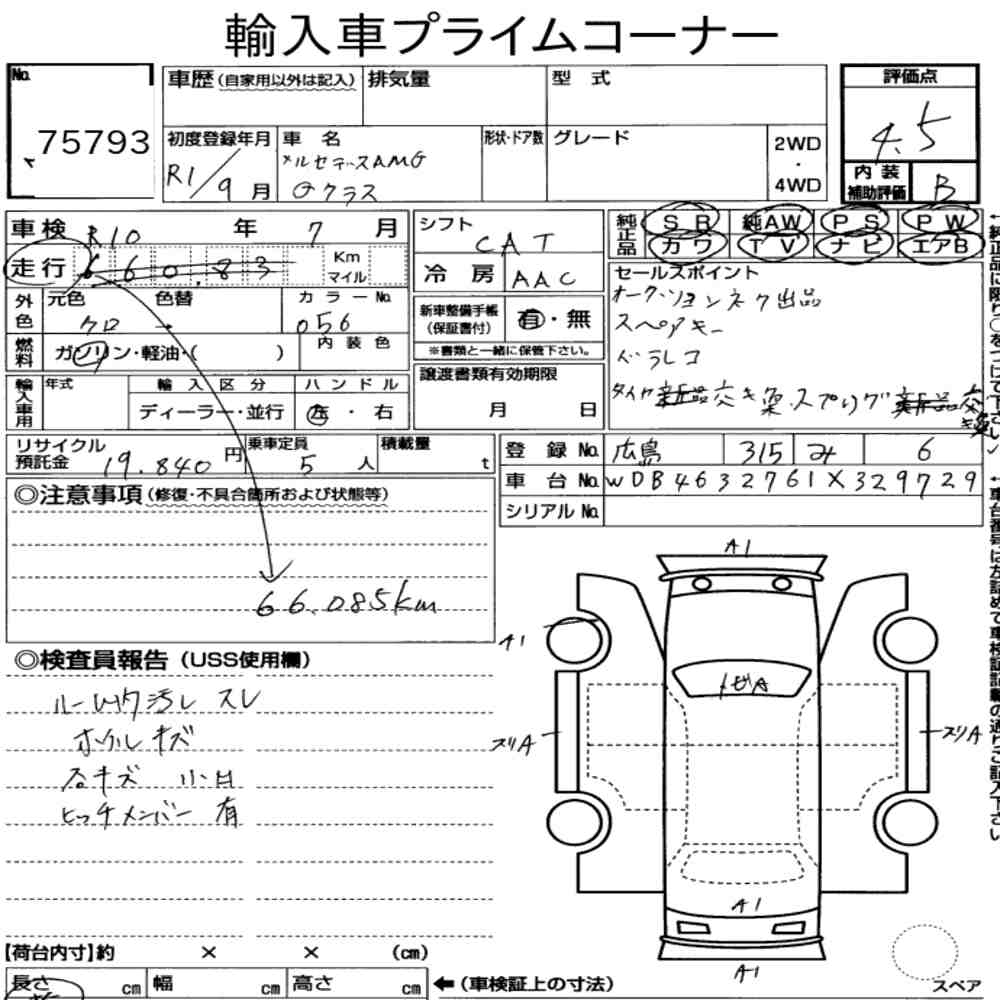 輸入車プライムコーナー
No.
75793
車歴(自家用以外は記入)
排気量
型 式
評価点
4.5
初度登録年月
R1/9月
車 名
メルセデスAMG
Gクラス
形状・ドア数
グレード
2WD
・
4WD
内 装
補助評価
B
車検 R10 年 7 月
走行 66083 Km マイル
シフト CAT
冷 房 AAC
純正品 SR 純AW PS PW
カワ TV ナビ エアB
外色 元色 色替 カラーNo.
クロ → 056
燃料 ガソリン・軽油・( )
内 装 色
新車整備手帳
(保証書付)
有・無
※書類と一緒に保管下さい。
セールスポイント
オークションネク出品
スペアキー
ドラレコ
輸入車用 年式 輸 入 区 分 ハ ン ド ル
ディーラー・並行 左 ・ 右
譲渡書類有効期限
月 日
リサイクル
預託金 19.840 円
乗車定員 5 人
積載量 t
登 録 No. 広島 315 み 6
車 台 No. WDB4632761X329729
シリアル No.
◎注意事項(修復・不具合箇所および状態等)
66.085km
◎検査員報告(USS使用欄)
ルーム内汚レ スレ
ホイルキズ
石キズ 小凹
ヒッチメンバー 有
A1
A1
トビA
スリA
スリA
A1
A1
【荷台内寸】約 × × (cm)
長さ cm 幅 cm 高さ cm
←(車検証上の寸法)
スペア
←純正品に限り○をつけて下さい
←車台番号は左詰めで車検証記載の通りご記入下さい